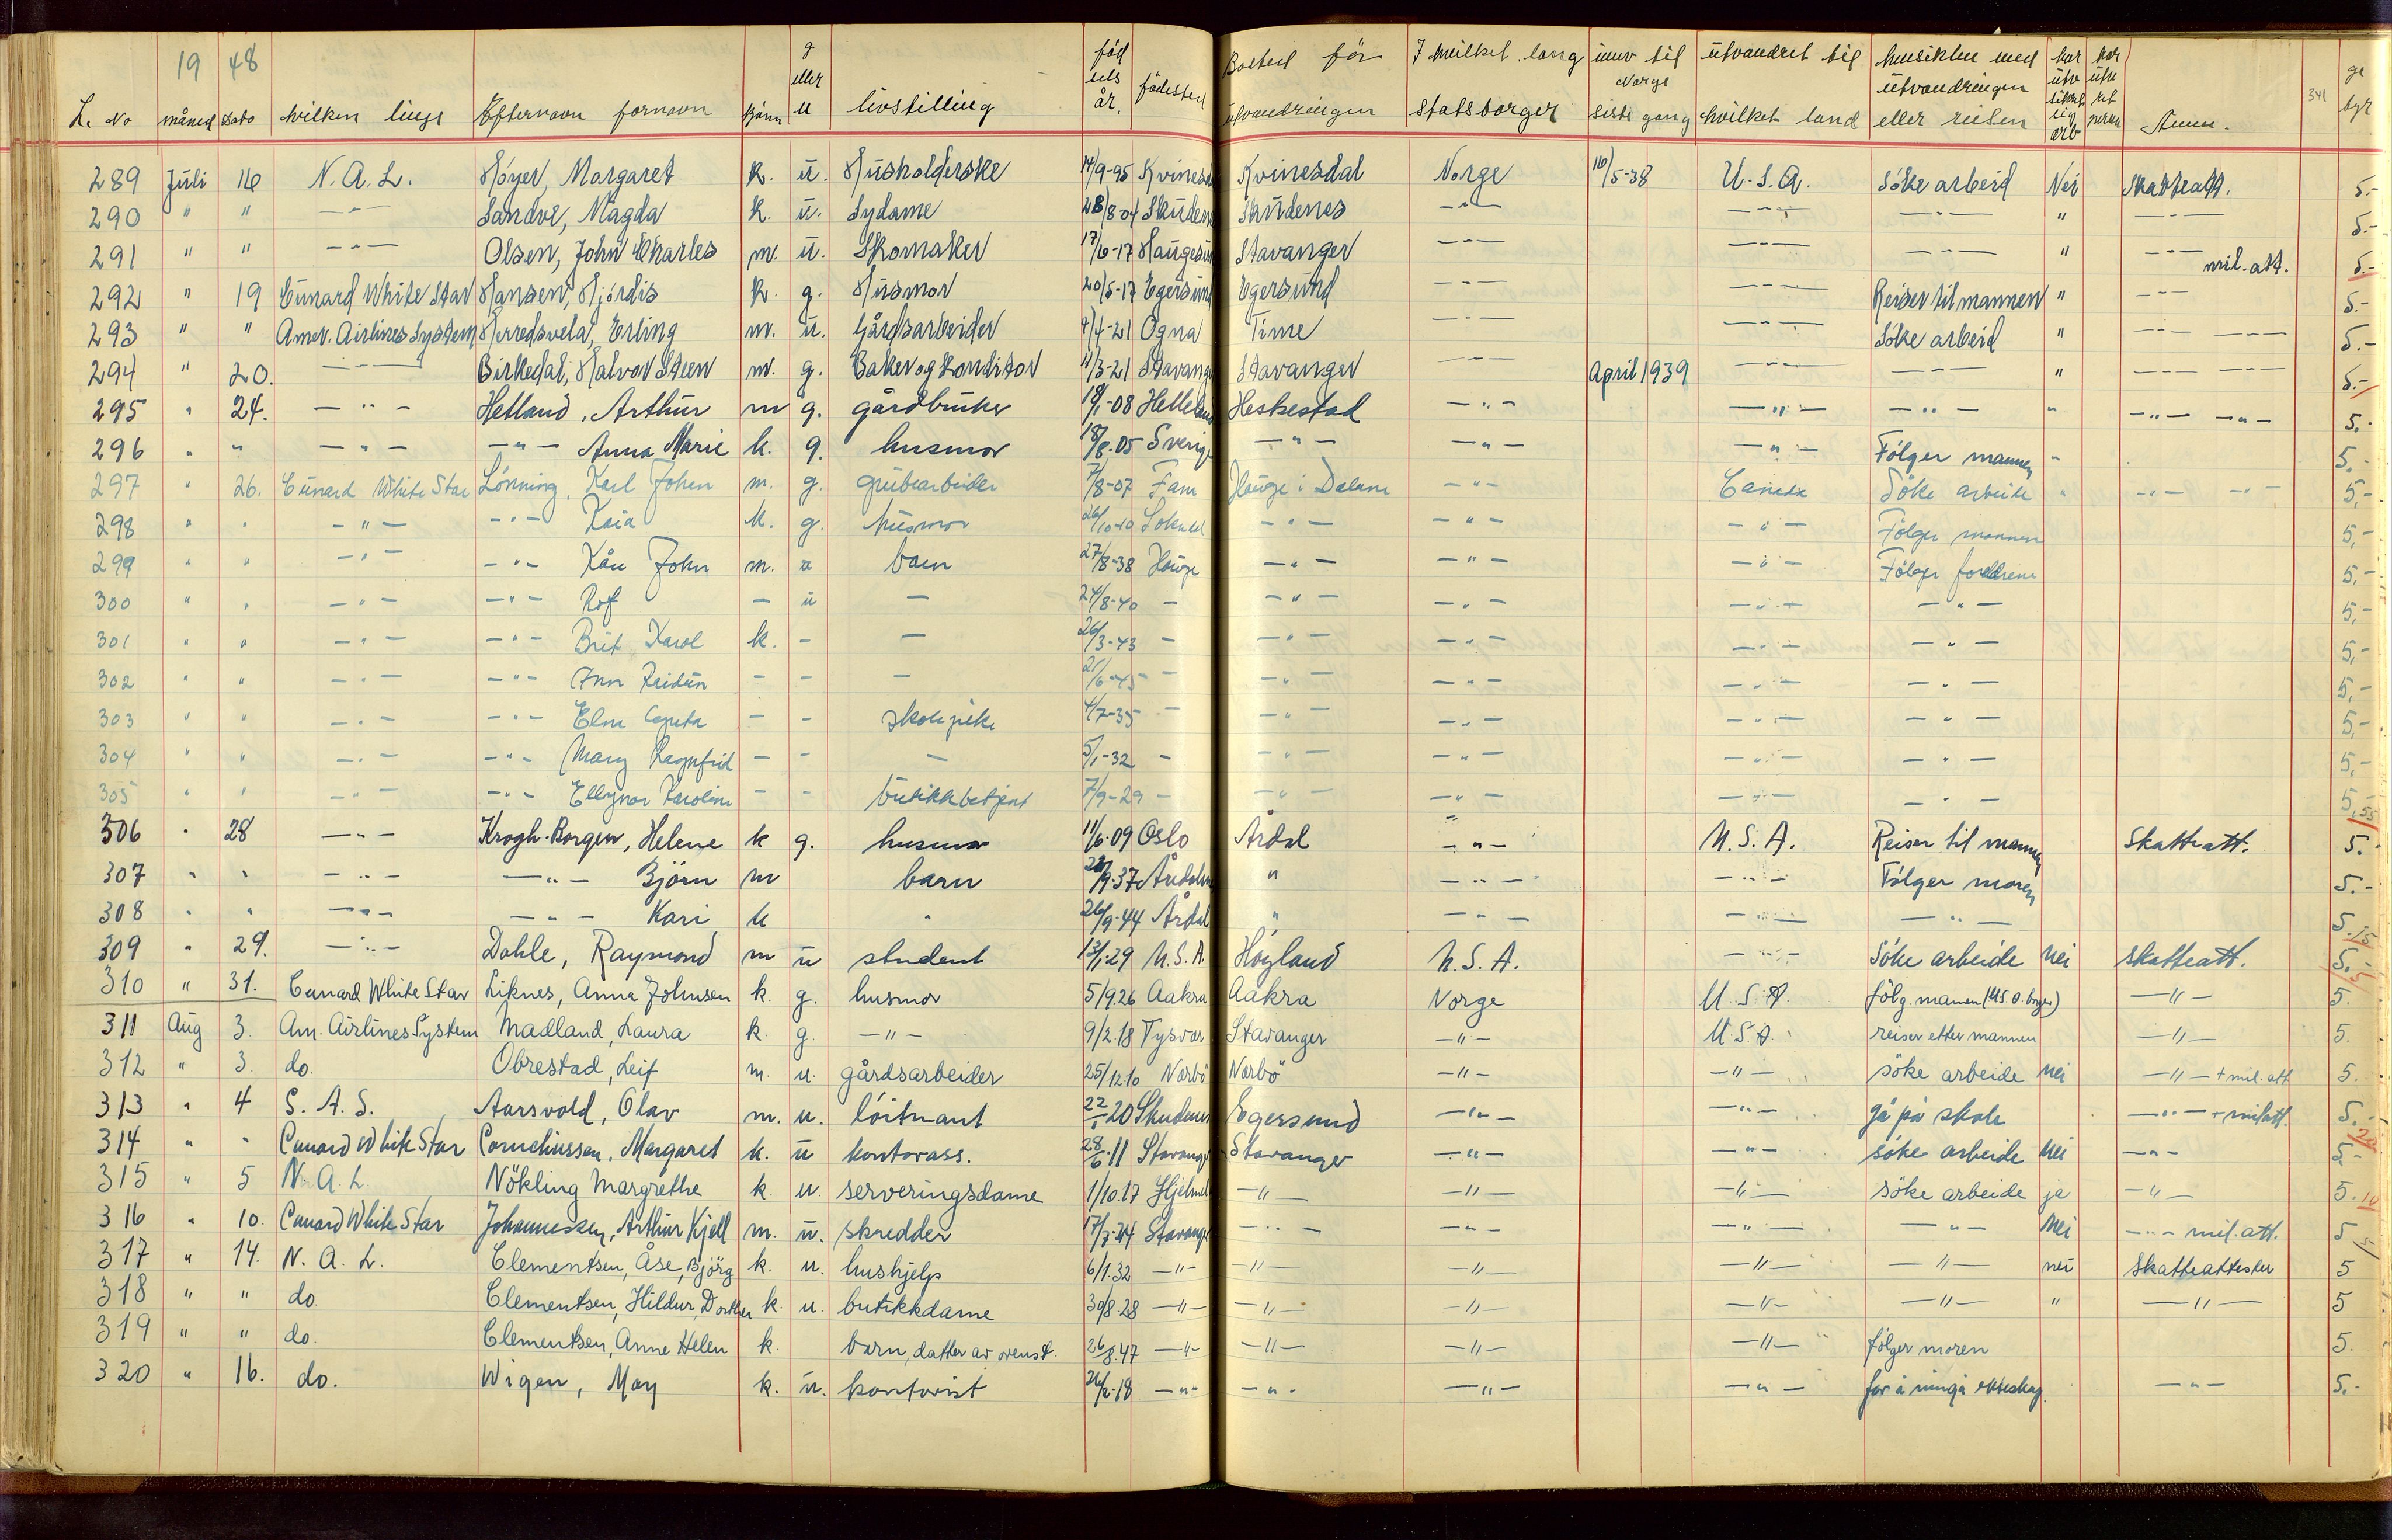 19 48 g føds 341 ge
L. No måned Dato hvilken linge Efternavn fornavn kjønn eller u livstilling år. fødested Bosted før utvandringen I hvilket lang statsborger innv til Norge siste gang utvandret til hvilket land hensikten med utvandringen eller reisen har utv sikret sig arb har utv Anm. byr
289 Juli 16 N.A.L. Høyer, Margaret k. u. Husholderske 14/9-95 Kvinesd Kvinesdal Norge 16/5-38 U.S.A. Søke arbeid Nei Skatteatt. 5.-
290 " " —"— Sandve, Magda k. u. Sydame 28/8-04 Skudenes Skudenes —"— —"— —"— " —"— 5.-
291 " " —"— Olsen, John Charles m. u. Skomaker 17/6-17 Haugesun Stavanger —"— —"— —"— " —"— mil.att. 5.-
292 " 19 Cunard White Star Hansen, Hjördis k. g. Husmor 20/5-17 Egersund Egersund —"— —"— Reiser til mannen " —"— 5.-
293 " " Amer. Airlines System Herredsvela, Erling m. u. Gårdsarbeider 4/4-21 Ogna Time —"— —"— Søke arbeid " —"— —"— 5.-
294 " 20. —"— Birkedal, Halvor Steen m. g. Baker og Konditor 11/3-21 Stavange Stavanger —"— April 1939 —"— —"— " —"— —"— 5.-
295 " 24. —"— Hetland, Arthur m g. gårdbruker 19/1-08 Helleland Heskestad —"— —"— —"— " —"— —"— 5.-
296 " " —"— —"— Anna Marie k. g. husmor 18/8.05 Sverige —"— —"— —"— Følger mannen " 5.-
297 " 26. Cunard White Star Lönning, Karl Johan m. g. grubearbeider 7/8-07 Fana Hauge i Dalane —"— Canada Söke arbeide " —"— —"— 5,-
298 " " —"— —"— Kaia k. g. husmor 26/10-10 Sokndal —"— —"— —"— Følger mannen 5,-
299 " " —"— —"— Kåre John m. u barn 27/8-38 Hauge —"— —"— —"— Følger foreldrene 5,-
300 " " —"— —"— Rolf — u — 24/8-40 — —"— —"— —"— —"— 5,-
301 " " —"— —"— Brit Karol k. - — 26/3-43 — —"— —"— —"— —"— 5,-
302 " " —"— —"— Ann Reidun - - — 21/6-45 — —"— —"— —"— —"— 5,-
303 " " —"— —"— Elna - - skolepike 4/7-35 — —"— —"— —"— —"— 5,-
304 " " —"— —"— Mary Ragnfrid - - — 5/1-32 — —"— —"— —"— —"— 5,-
305 " " —"— —"— Ellynor Karoline - - butikkbetjent 7/9-29 — —"— —"— —"— —"— 5,- 55
306 " 28 —"— Krogh-Borgen, Helene k g. husmor 11/6.09 Oslo Årdal —"— U.S.A. Reiser til mannen Skatteatt. 5.-
307 " " —"— —"— Björn m barn 28/9.37 " —"— —"— Følger moren 5.-
308 " " —"— —"— Kari k " 26/9.44 Årdal " —"— —"— —"— 5.- 15
309 " 29. —"— Dahle, Raymond m u student 13/1.29 U.S.A. Höyland U.S.A. —"— Söke arbeide nei skatteatt. 5.- 5
310 " 31. Cunard White Star Liknes, Anna Johnsen k. g. husmor 5/9.26 Aakra Aakra Norge U.S.A. følg. mannen (U.S.A. borger) —"— 5.
311 Aug 3. Am. Airlines System Madland, Laura k. g. —"— 9/2.18 Tysvær Stavanger —"— U.S.A. reiser etter mannen —"— 5.
312 " 3. do. Obrestad, Leif m. u. gårdsarbeider 25/12 10 Nærbö Nærbö —"— —"— söke arbeide nei —"— + mil. att 5.
313 " 4 S.A.S. Aarsvold, Olav m. u. löitnant 22/1 20 Skudenes Egersund —"— —"— gå på skole —"— + mil att. 5.- 20
314 " " Cunard White Star Corneliussen, Margaret k. u kontorass. 28/6.11 Stavanger Stavanger —"— —"— söke arbeide nei —"— 5.-
315 " 5 N.A.L. Nökling Margrethe k. u. serveringsdame 1/10.17 Hjelmel —"— —"— —"— söke arbeide ja —"— 5. 10
316 " 10. Cunard White Star Johannessen, Arthur Kjell m. u. skredder 17/7.24 Stavange —"— —"— —"— —"— Nei —"— mil. att. 5 5
317 " 14. N.A.L. Clementsen, Åse, Bjørg k. u. hushjelp 6/1.32 —"— —"— —"— —"— —"— nei Skatteattester 5
318 " " do. Clementsen, Hildur, Dorthea k. u. butikkdame 30/8.28 —"— —"— —"— —"— —"— " —"— 5
319 " " do. Clementsen, Anne Helen k. barn, datter av ovenst. 26/8.47 —"— —"— —"— —"— følger moren 5.
320 " 16. do. Wigen, May k. u. kontorist 24/2-18 —"— —"— —"— —"— for å inngå ekteskap. —"— 5.-